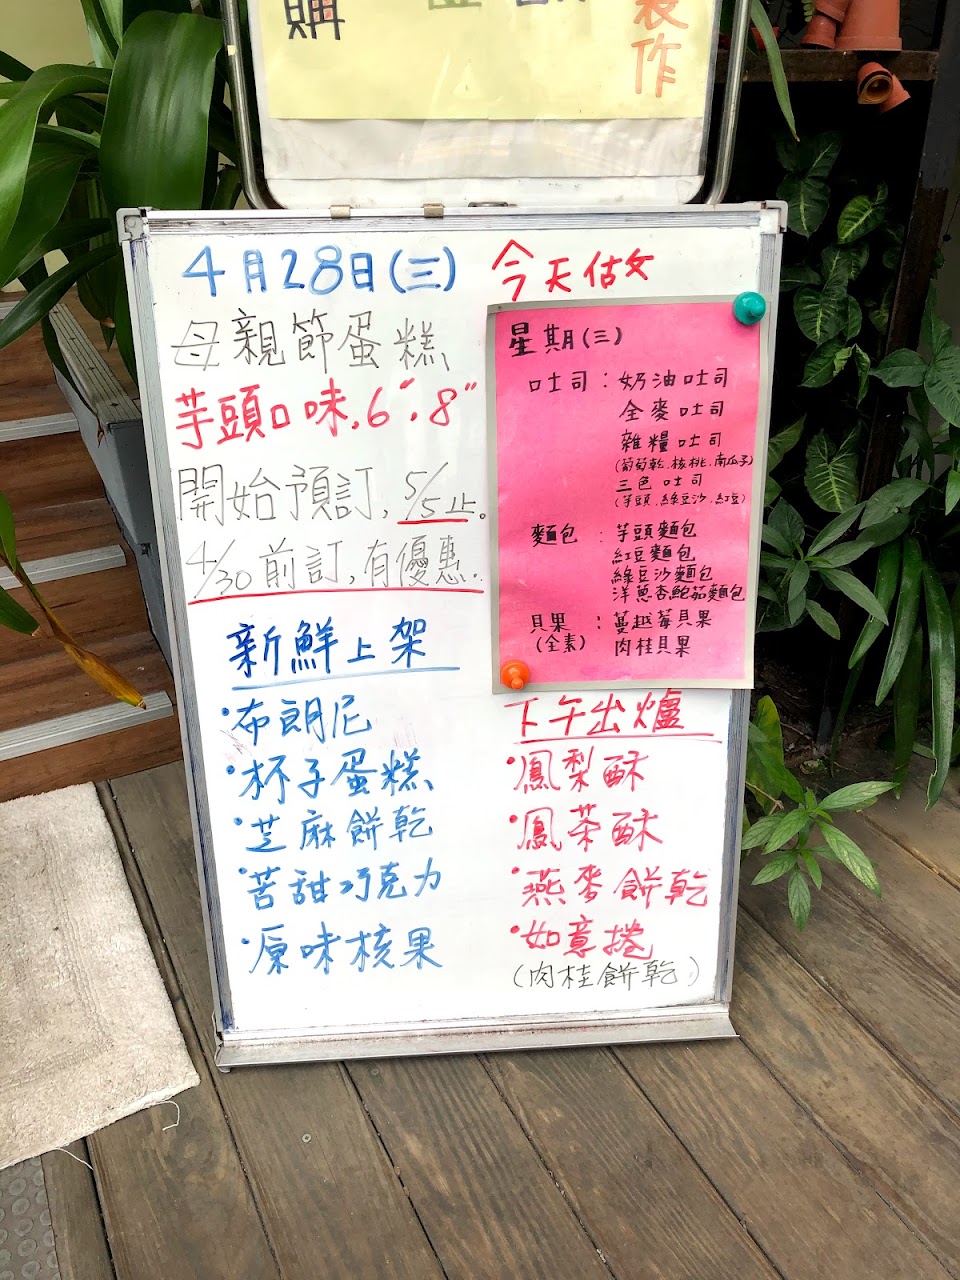 購
製作
4月28日(三)
今天估做
母親節蛋糕
芋頭口味.6"."8"
開始預訂,5/5止。
4/30前訂,有優惠.
新鮮上架
·布朗尼
·杯子蛋糕
·芝麻餅乾
·苦甜巧克力
·原味核果
星期(三)
吐司:奶油吐司
全麥吐司
雜糧吐司
(葡萄乾.核桃.南瓜子)
三色吐司
(芋頭.綠豆沙.紅豆)
麵包:芋頭麵包
紅豆麵包
綠豆沙麵包
洋蔥杏鮑菇麵包
貝果:蔓越莓貝果
(全素) 肉桂貝果
下午出爐
·鳳梨酥
·鳳茶酥
·燕麥餅乾
·如意捲
(肉桂餅乾)